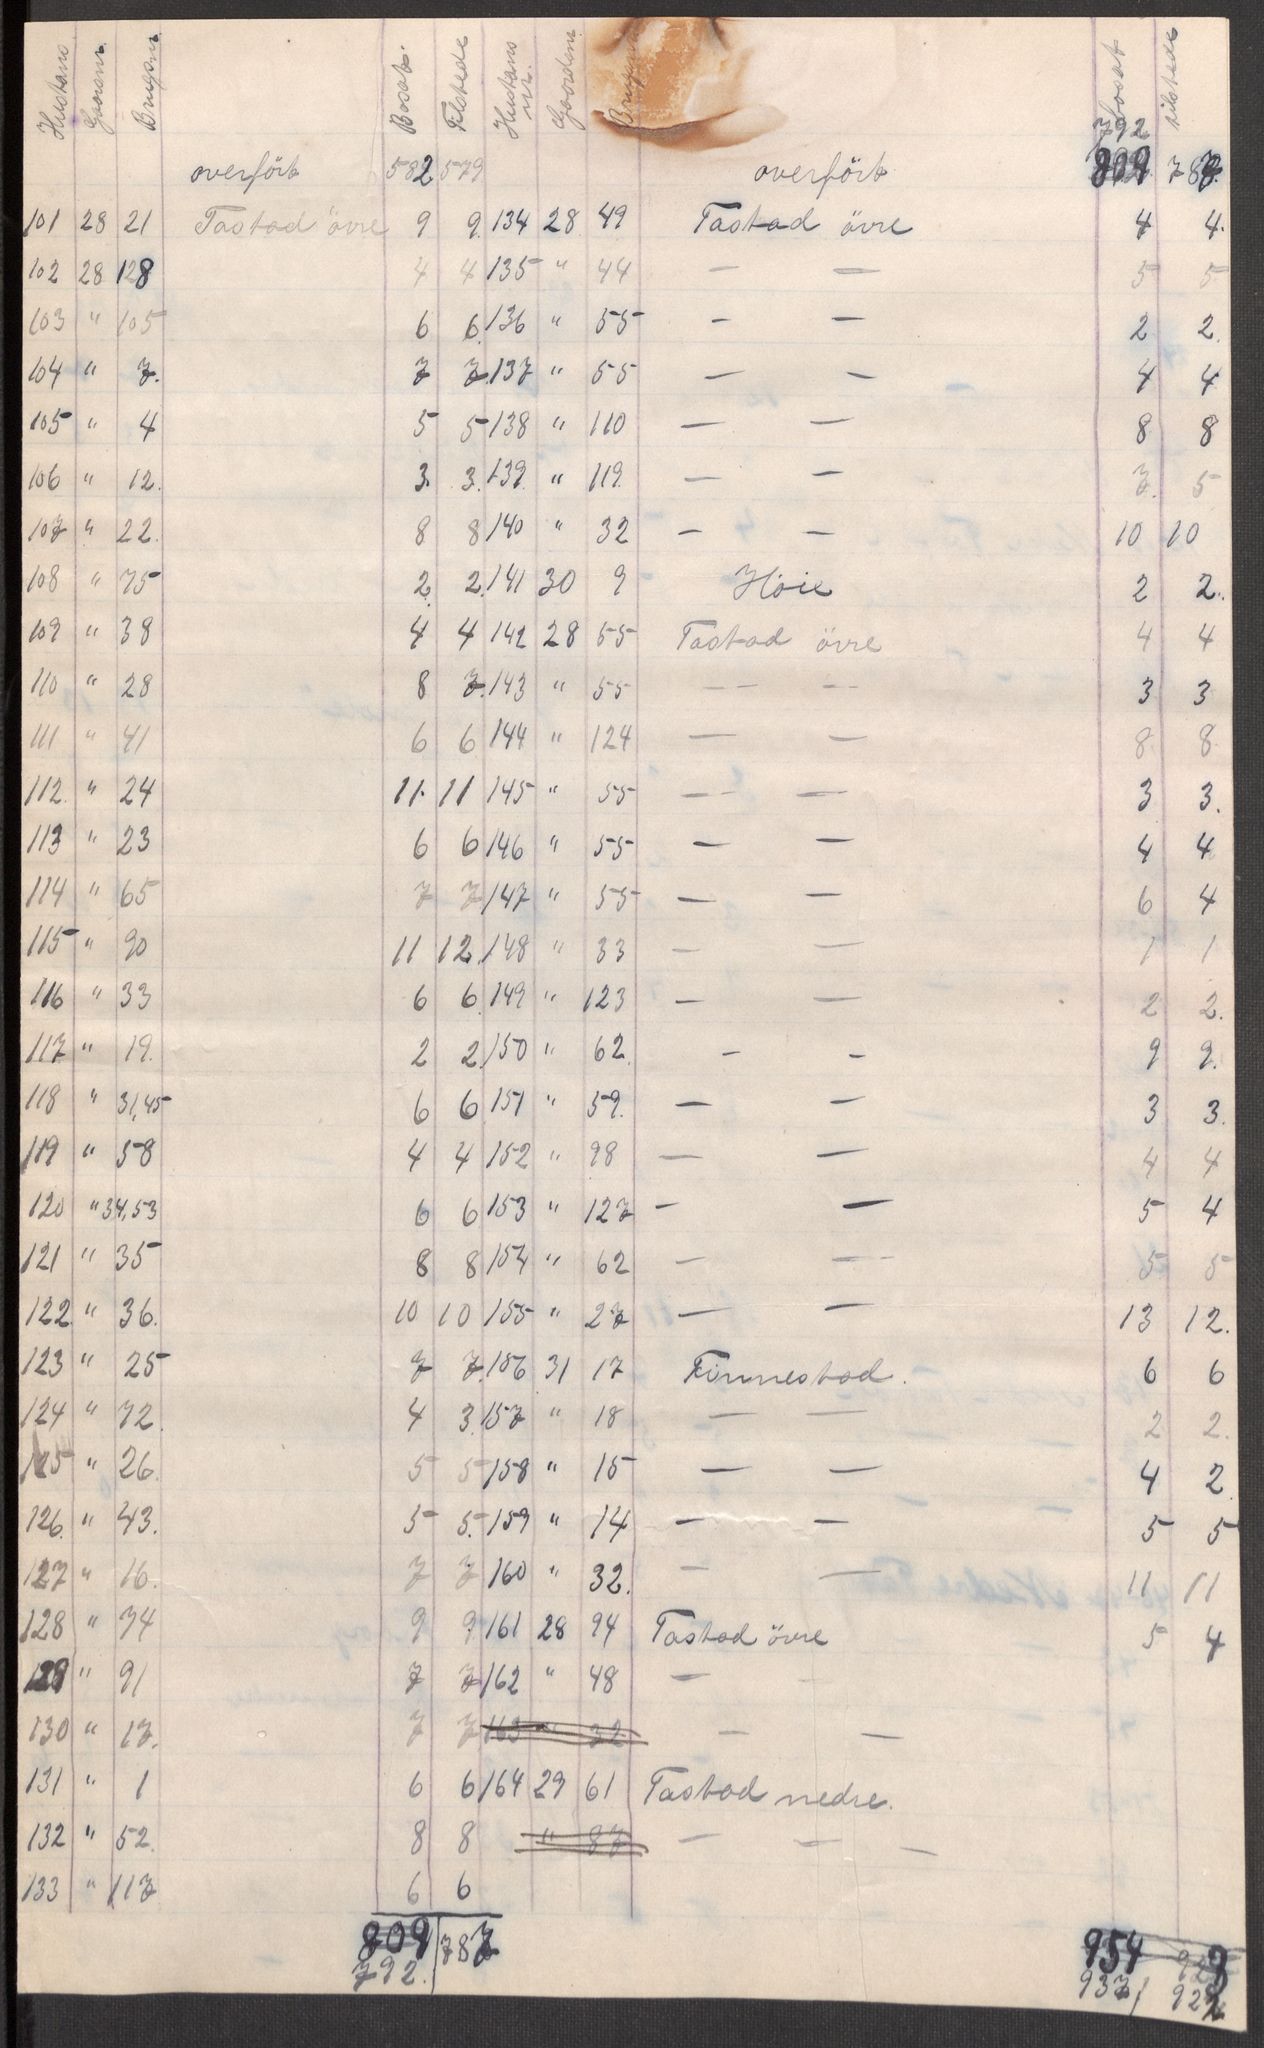 Hustans Gaardn. Brugsn. Bosat. Tilstede
overført 582 579
101 28 21 Tastad övre 9 9.
102 28 128 4 4
103 " 105 6 6.
104 " 7. 7 7.
105 " 4 5 5
106 " 12. 3. 3.
107 " 22. 8 8
108 " 75 2. 2.
109 " 38 4 4
110 " 28 8 7.
111 " 41 6 6
112. " 24 11. 11
113 " 23 6 6
114 " 65 7 7
115 " 90 11 12.
116 " 33 6 6.
117 " 19. 2 2
118 " 31,45 6 6
119 " 58 4 4
120 " 34,53 6 6
121 " 35 8 8
122 " 36. 10 10
123 " 25 7 7.
124 " 72. 4 3.
125 " 26. 5 5
126. " 43. 5 5.
127 " 16. 7 7
128 " 74 9 9
129 " 91 7 7
130 " 17. 7 7
131 " 1 6 6
132 " 52. 8 8
133 " 117 6 6
809 787
792.
Hustans nr. Gaardsn. bosat tilstede
792
overført 809 787.
134 28 49 Tastad övre 4 4.
135 " 44 — — 5 5
136 " 55 — — 2 2.
137 " 55 — — 4 4
138 " 110 — — 8 8
139. " 119. — — 7. 5
140 " 32 — — 10 10
141 30 9 Höie 2 2.
142 28 55 Tastad övre 4 4
143 " 55 — — 3 3
144 " 124 — — 8 8
145 " 55 — — 3 3.
146 " 55 — — 4 4
147 " 55 — — 6 4
148 " 33 — — 1 1
149 " 123 — — 2 2.
150 " 62. — — 9 9.
151 " 59. — — 3 3.
152 " 98 — — 4 4
153 " 127 — — 5 4
154 " 62 — — 5 5
155 " 27 — — 13 12.
156 31 17 Finnestad. 6 6
157 " 18 — — 2 2.
158 " 15 — — 4 2.
159 " 14 — — 5 5
160 " 32. — — 11 11
161 28 94 Tastad övre 5 4
162 " 48 — —
163 " 32 — —
164 29 61 Tastad nedre.
" 87 — — —
954
937/ 922